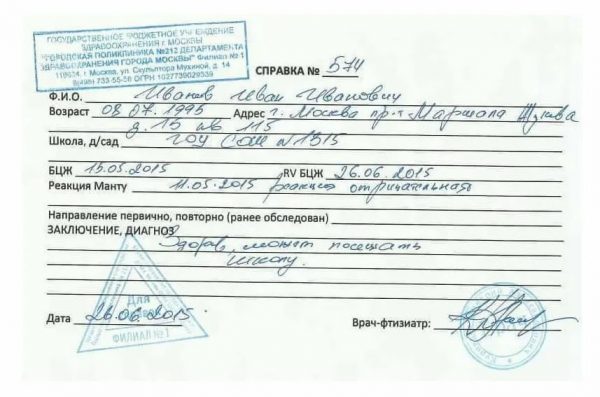 ГОСУДАРСТВЕННОЕ БЮДЖЕТНОЕ УЧРЕЖДЕНИЕ
ЗДРАВООХРАНЕНИЯ г. МОСКВЫ
"ГОРОДСКАЯ ПОЛИКЛИНИКА №212 ДЕПАРТАМЕНТА
ЗДРАВООХРАНЕНИЯ ГОРОДА МОСКВЫ" Филиал № 1
119634, г. Москва, ул. Скульптора Мухиной, д. 14
8(495) 733-55-56 ОГРН 1027739029539
СПРАВКА № 574
Ф.И.О. Иванов Иван Иванович
Возраст 08.07.1995 Адрес г. Москва пр-т Маршала Жукова
д. 15 кв 115
Школа, д/сад ГОУ СОШ №1315
БЦЖ 15.05.2015 RV БЦЖ 26.06.2015
Реакция Манту 11.05.2015 реакция отрицательная
Направление первично, повторно (ранее обследован)
ЗАКЛЮЧЕНИЕ, ДИАГНОЗ
Здоров, может посещать
школу.
Для
Дата 26.06.2015
ФИЛИАЛ №1
Врач-фтизиатр: